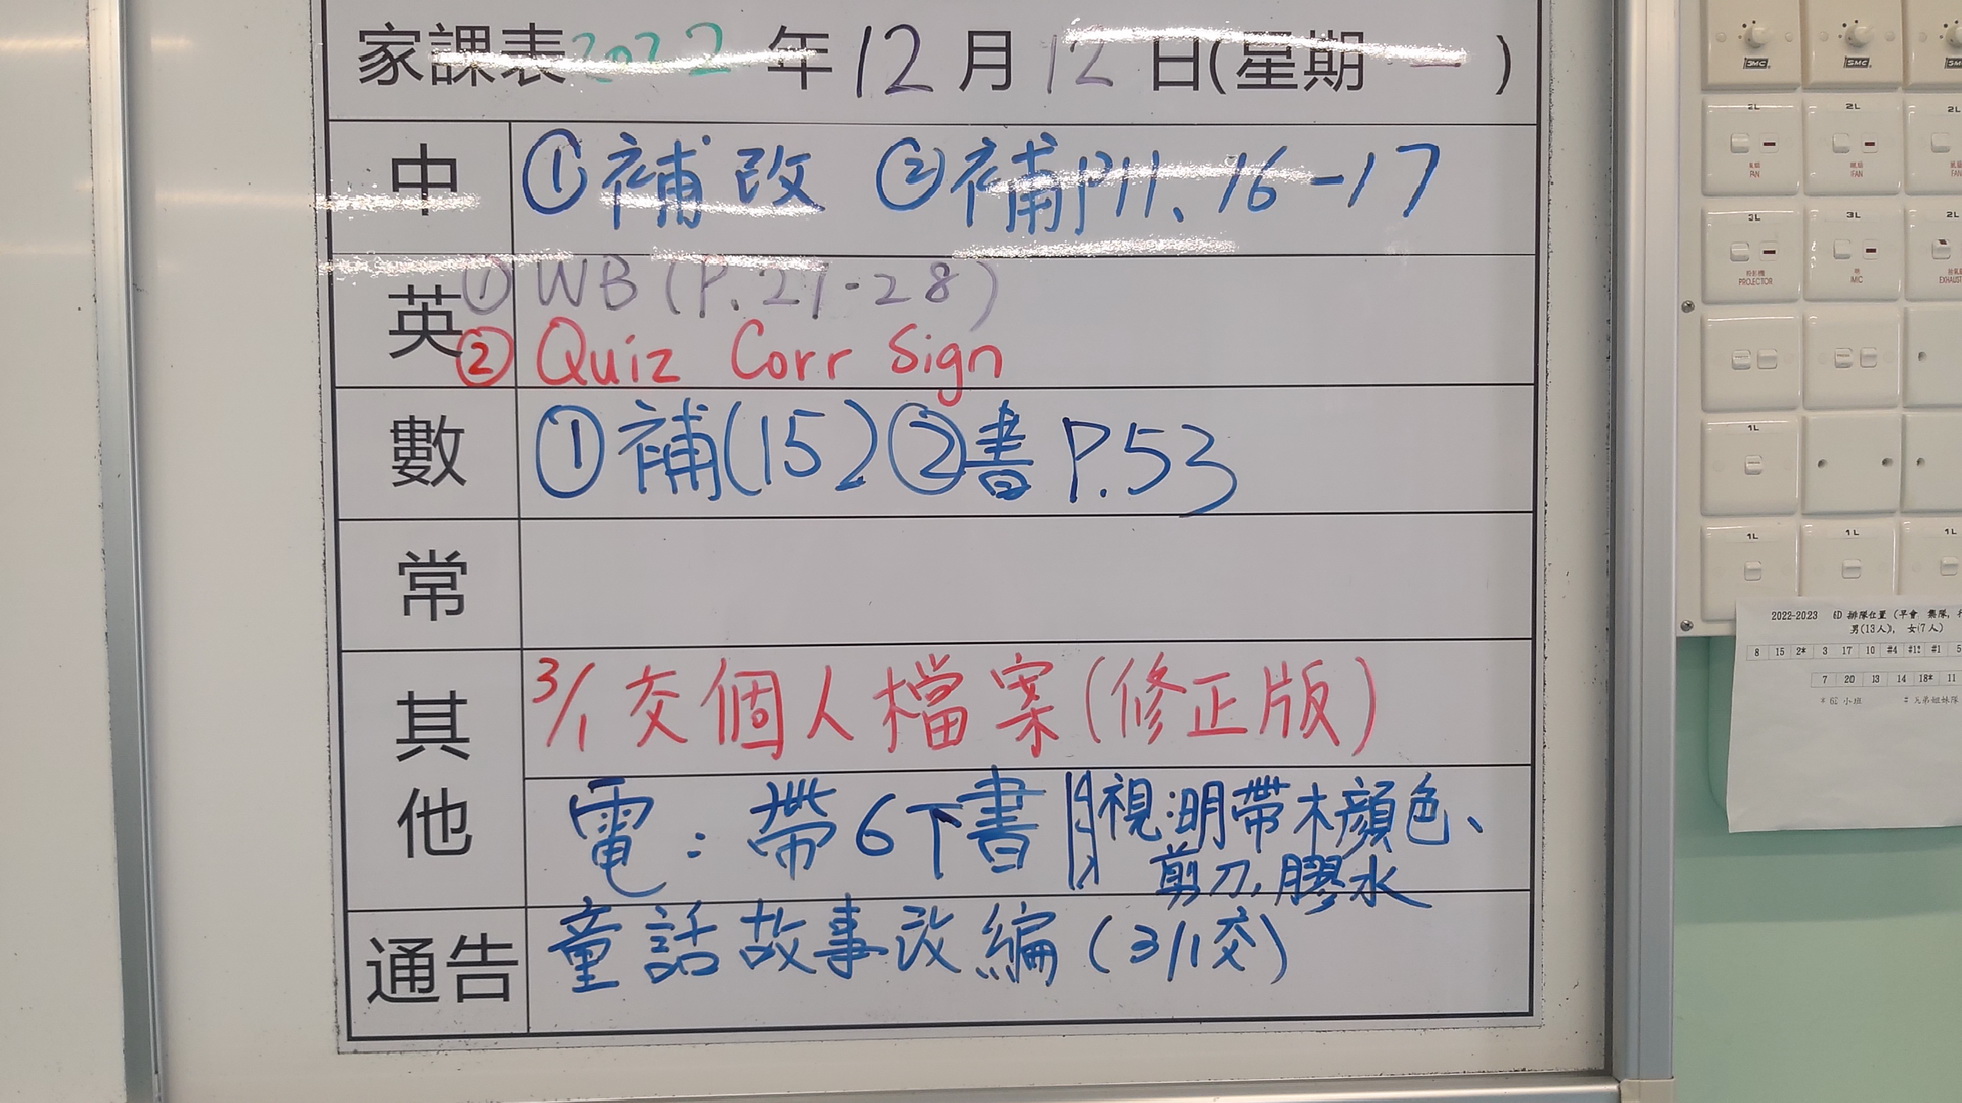 家課表2022年12月12日(星期一)
中 ①補改 ②補P11、16-17
英 ① WB (P.27-28)
② Quiz Corr Sign
數 ①補(15) ②書 P.53
常
其他 3/1 交個人檔案(修正版)
電:帶6下書 視:明帶木顏色、
剪刀,膠水
通告 童話故事改編(3/1交)
SMC SMC SMC
2L 2L 2L
FAN FAN FAN
3L 3L 2L
PROJECTOR MIC EXHAUST
1L
1L 1L 1L
2022-2023 6D 排隊位置 (早會
男(13人), 女(7人)
8 15 2* 3 17 10 #4 #12 #1 5
7 20 13 14 18* 11